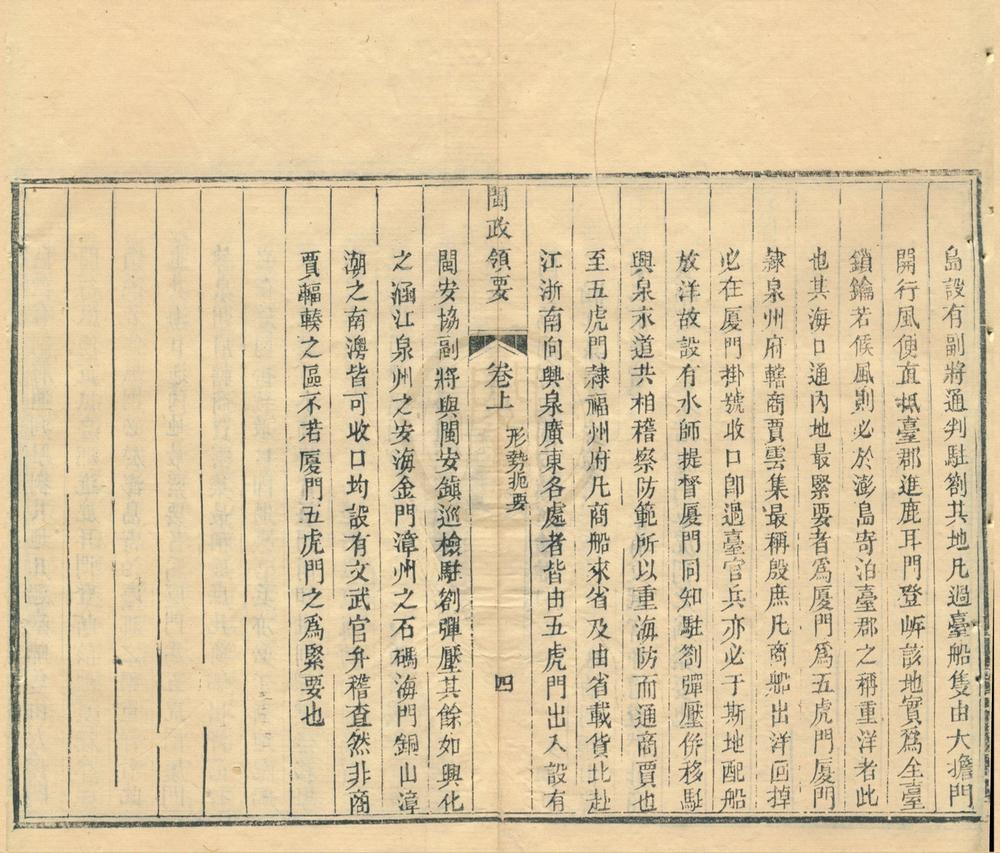 島設有副將通判駐劄其地凡過臺船隻由大擔門
開行風便直抵臺郡進鹿耳門登岸該地實爲全臺
鎖鑰若候風則必於澎島寄泊臺郡之稱重洋者此
也其海口通內地最緊要者爲厦門爲五虎門厦門
隸泉州府轄商賈雲集最稱殷庶凡商船出洋回掉
必在厦門掛號收口卽過臺官兵亦必于斯地配船
放洋故設有水師提督厦門同知駐劄彈壓併移駐
興泉永道共相稽察防範所以重海防而通商賈也
至五虎門隸福州府凡商船來省及由省載貨北赴
江浙南向興泉廣東各處者皆由五虎門出入設有
閩政領要
卷上
形勢扼要
四
閩安協副將與閩安鎮巡檢駐劄彈壓其餘如興化
之涵江泉州之安海金門漳州之石碼海門銅山漳
潮之南澳皆可收口均設有文武官弁稽查然非商
賈輻輳之區不若厦門五虎門之爲緊要也